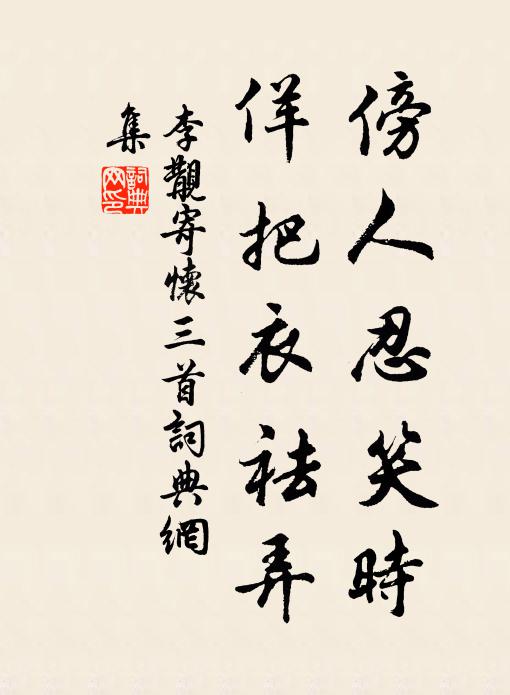 傍人忍笑時
佯把衣袪弄
李觀寄懷三首詞典網
集
詞典網印